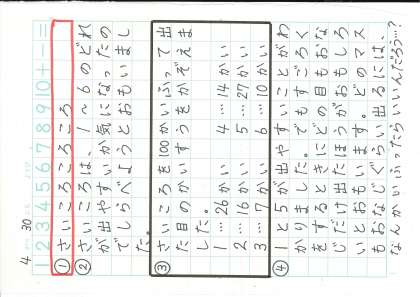 4 30
1234567890+-=
①さいころころころ
②さいころは、1~6のどれ
が出やすいか気になったの
でしらべようとおもいまし
た。
③さいころを100かいふって出
た目のかいすうをかぞえま
した。
1…26かい 4…14かい
2…16かい 5…27かい
3…7かい 6…10かい
④1と5が出やすいことがわ
かりました。でもすごろく
をするときにどの目もおな
じだけ出たほうがおもしろ
いとおもいます。どのマス
もおなじぐらい出るには、
なんかいふったらいいんだろう…?